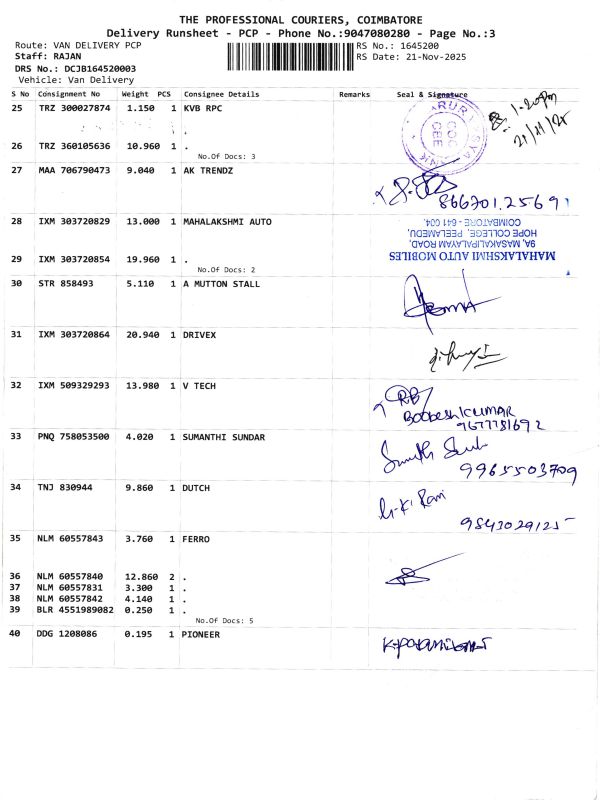 THE PROFESSIONAL COURIERS, COIMBATORE
Delivery Runsheet - PCP - Phone No.:9047080280 - Page No.:3
Route: VAN DELIVERY PCP
RS No.: 1645200
Staff: RAJAN
RS Date: 21-Nov-2025
DRS No.: DCJB164520003
Vehicle: Van Delivery
S No Consignment No Weight PCS Consignee Details Remarks Seal & Signature
25 TRZ 300027874 1.150 1 KVB RPC
.
1.20pm
21/11/25
26 TRZ 360105636 10.960 1 .
No.Of Docs: 3
27 MAA 706790473 9.040 1 AK TRENDZ
28 IXM 303720829 13.000 1 MAHALAKSHMI AUTO
MAHALAKSHMI AUTO MOBILES
9A, MASAKALIPALAYAM ROAD,
HOPE COLLEGE, PEELAMEDU,
COIMBATORE - 641 004.
29 IXM 303720854 19.960 1 .
No.Of Docs: 2
30 STR 858493 5.110 1 A MUTTON STALL
31 IXM 303720864 20.940 1 DRIVEX
32 IXM 509329293 13.980 1 V TECH
RB
BoobeshKUMAR
33 PNQ 758053500 4.020 1 SUMANTHI SUNDAR
9965503709
34 TNJ 830944 9.860 1 DUTCH
9843029125
35 NLM 60557843 3.760 1 FERRO
36 NLM 60557840 12.860 2 .
37 NLM 60557831 3.300 1 .
38 NLM 60557842 4.140 1 .
39 BLR 4551989082 0.250 1 .
No.Of Docs: 5
40 DDG 1208086 0.195 1 PIONEER